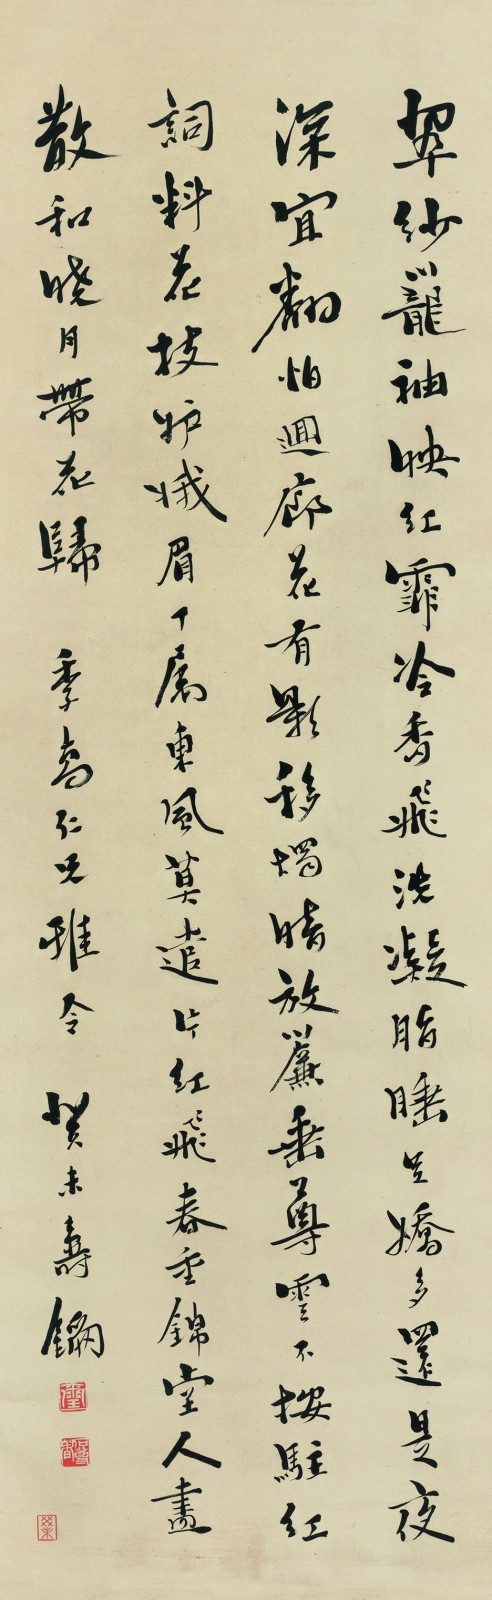 翠紗籠袖映紅霏冷香飛洗凝脂睡足嬌多還是夜
深宜翻怕迴廊花有影移燭暗放簾垂尊雲不按駐紅
詞料花枝妒娥眉丁屬東風莫遣片紅飛春重錦堂人盡
散和曉月帶花歸 季高仁兄雅令 癸未壽鑈
癸未